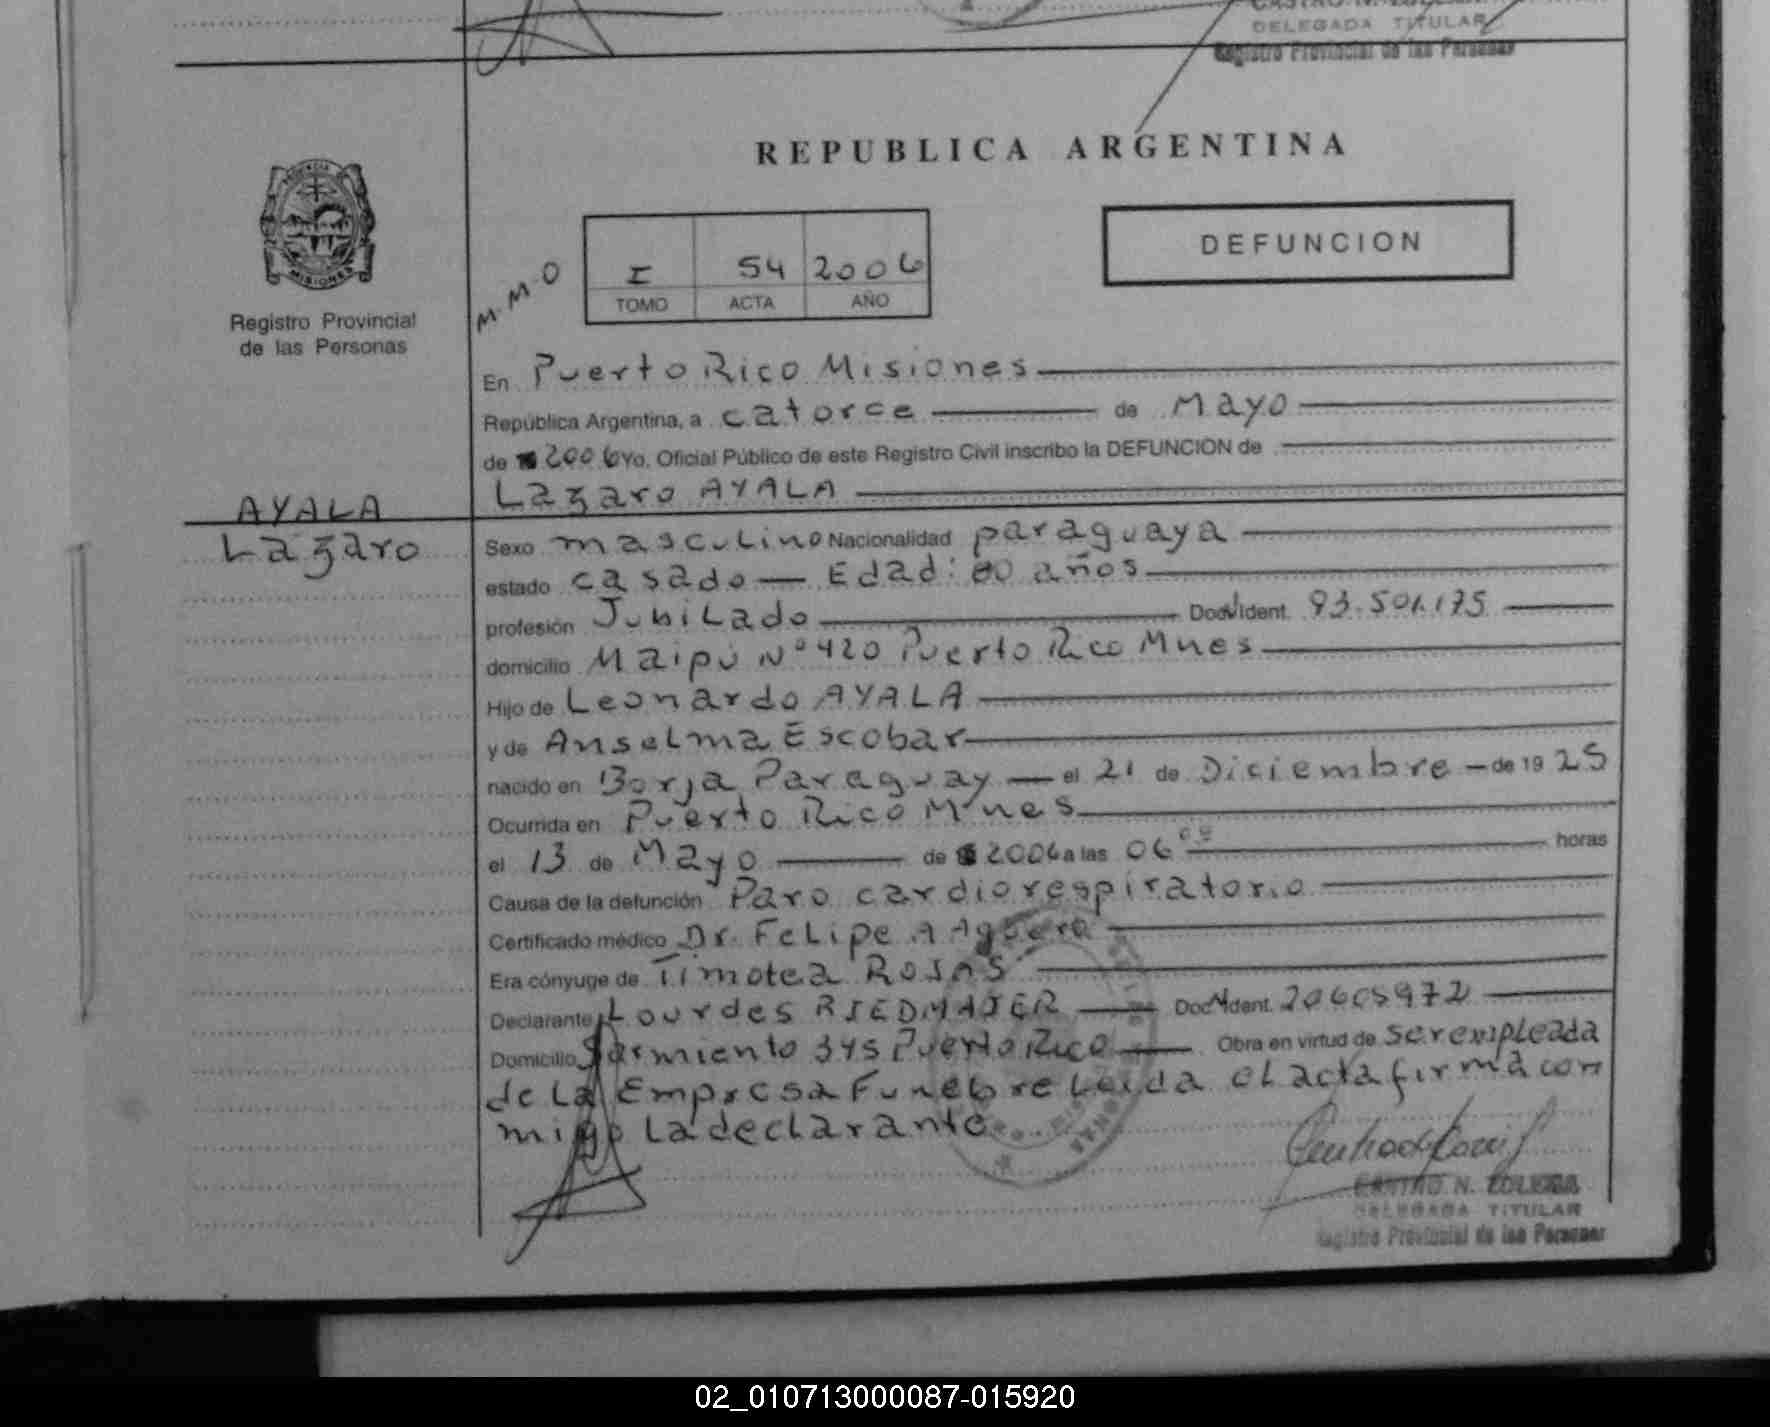 DELEGADA TITULAR
Registro Provincial de las Personas
REPUBLICA ARGENTINA
DEFUNCION
M.M.O
I 54 2006
TOMO ACTA AÑO
MISIONES
Registro Provincial
de las Personas
En Puerto Rico Misiones
República Argentina, a catorce de Mayo
de 2006 Yo, Oficial Público de este Registro Civil inscribo la DEFUNCION de
Lazaro AYALA
AYALA
Lazaro
Sexo masculino Nacionalidad paraguaya
estado casado — Edad: 80 años
profesión Jubilado Doc. Ident. 93.501.175
domicilio Maipú Nº 420 Puerto Rico Mnes
Hijo de Leonardo AYALA
y de Anselma Escobar
nacido en Borja Paraguay — el 21 de Diciembre — de 19 25
Ocurrida en Puerto Rico Mnes
el 13 de Mayo de 2006 a las 06 horas
Causa de la defunción Paro cardiorespiratorio
Certificado médico Dr. Felipe A Agüero
Era cónyuge de Timotea ROJAS
Declarante Lourdes RIEDMAJER Doc. Ident. 20605972
Domicilio Sarmiento 345 Puerto Rico Obra en virtud de ser empleada
de la Empresa Funebre Leida el acta firma con
migo la declarante
CASTRO N. ZULEMA
DELEGADA TITULAR
Registro Provincial de las Personas
02_010713000087-015920